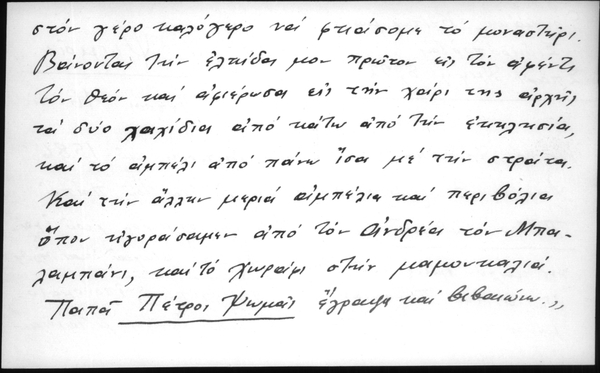 στόν γέρο καλόγερο νά φτιάσομε τό μοναστήρι.
Βάνοντας τήν ἐλπίδα μου πρῶτον εἰς τόν ἀφέντη
τόν Θεόν καί ἀφιέρωσα εἰς τήν χάρι της ἀρχῆς
τά δύο λαχίδια ἀπό κάτω ἀπό τήν ἐκκλησία,
καί τό ἀμπέλι ἀπό πάνω ἴσα μέ τήν στράτα.
Καί τήν ἄλλην μεριά ἀμπέλια καί περιβόλια
ὅπου ἠγοράσαμεν ἀπό τόν Ἀνδρέα τόν Μπα-
λαμπάνι, καί τό χωράφι στήν μαμουκαλιά.
Παπᾶ Πέτρος Ψωμᾶς ἔγραψα καί βεβαιώνω.,,